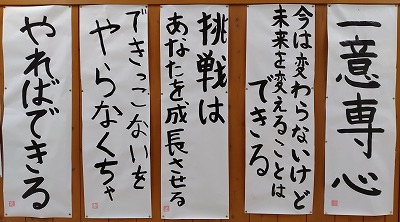 一意専心
今は変わらないけど
未来を変えることは
できる
挑戦は
あなたを成長させる
できっこないを
やらなくちゃ
やればできる